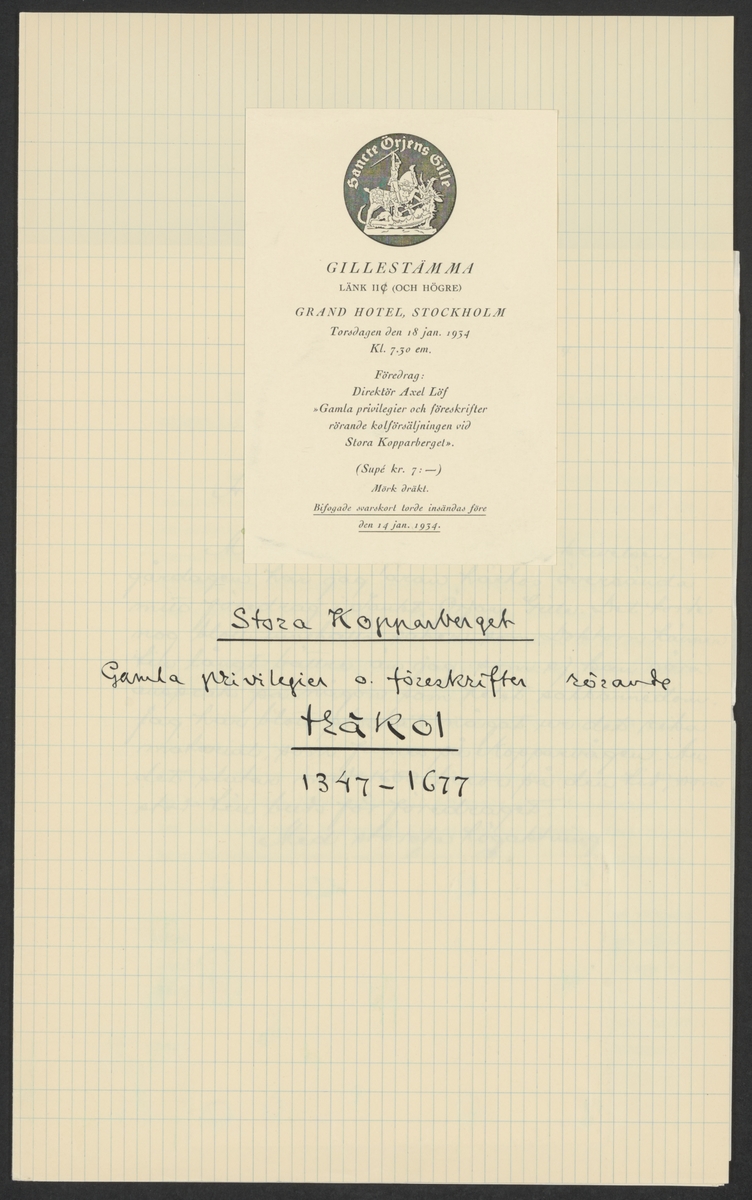 Sancte Örjens Gille
GILLESTÄMMA
LÄNK II₵ (OCH HÖGRE)
GRAND HOTEL, STOCKHOLM
Torsdagen den 18 jan. 1934
Kl. 7.30 em.
Föredrag:
Direktör Axel Löf
»Gamla privilegier och föreskrifter
rörande kolförsäljningen vid
Stora Kopparberget».
(Supé kr. 7:—)
Mörk dräkt.
Bifogade svarskort torde insändas före
den 14 jan. 1934.
Stora Kopparberget
Gamla privilegier o. föreskrifter rörande
träkol
1347 – 1677